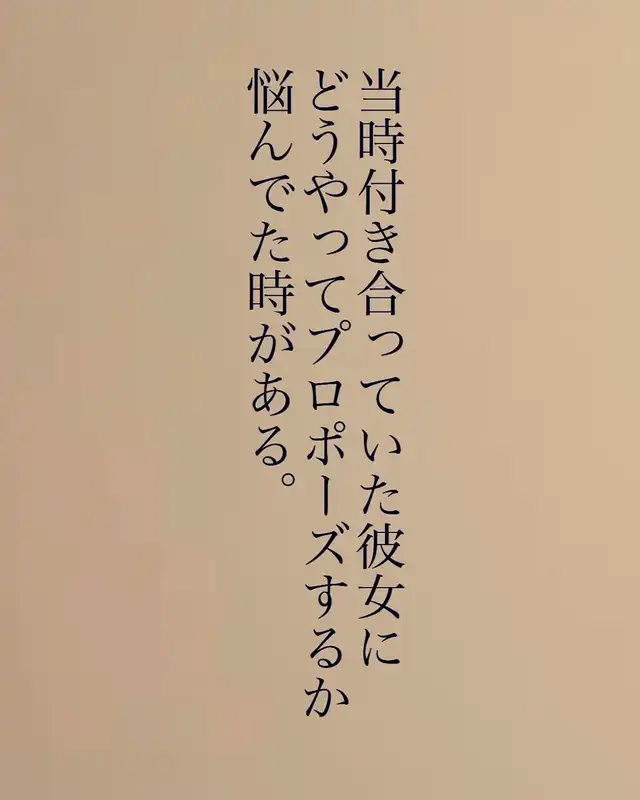 当時付き合っていた彼女に
どうやってプロポーズするか
悩んでた時がある。